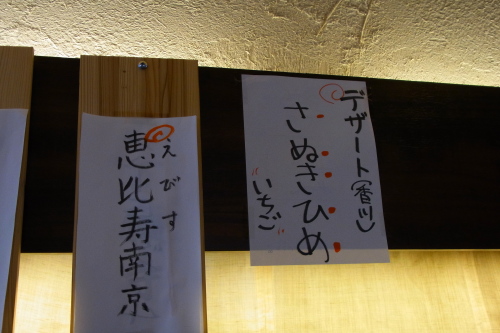 デザート(香川)
さぬきひめ
"いちご"
えびす
恵比寿南京